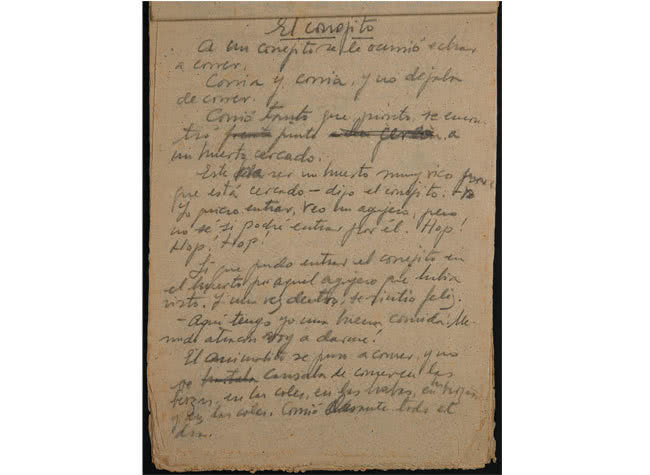 El conejito
A un conejito se le ocurrió echar
a correr.
Corría y corría, y no dejaba
de correr.
Corrió tanto que pronto se encon-
tró frente junto a
un huerto cercado.
Este ser un huerto muy rico porque
que está cercado – dijo el conejito. –
Yo quiero entrar, veo un agujero, pero
no sé si podré entrar por él. Hop!
Hop! Hop!
Sí que pudo entrar el conejito en
el huerto por aquel agujero que había
visto. Y una vez dentro, se sintió feliz.
– Aquí tengo yo una buena comida. Me-
nudo atracón voy a darme!
El animalito se puso a comer, y no
se cansaba de comer en las
berzas, en las coles, en las habas, en
y en las coles. Comió durante todo el
día.